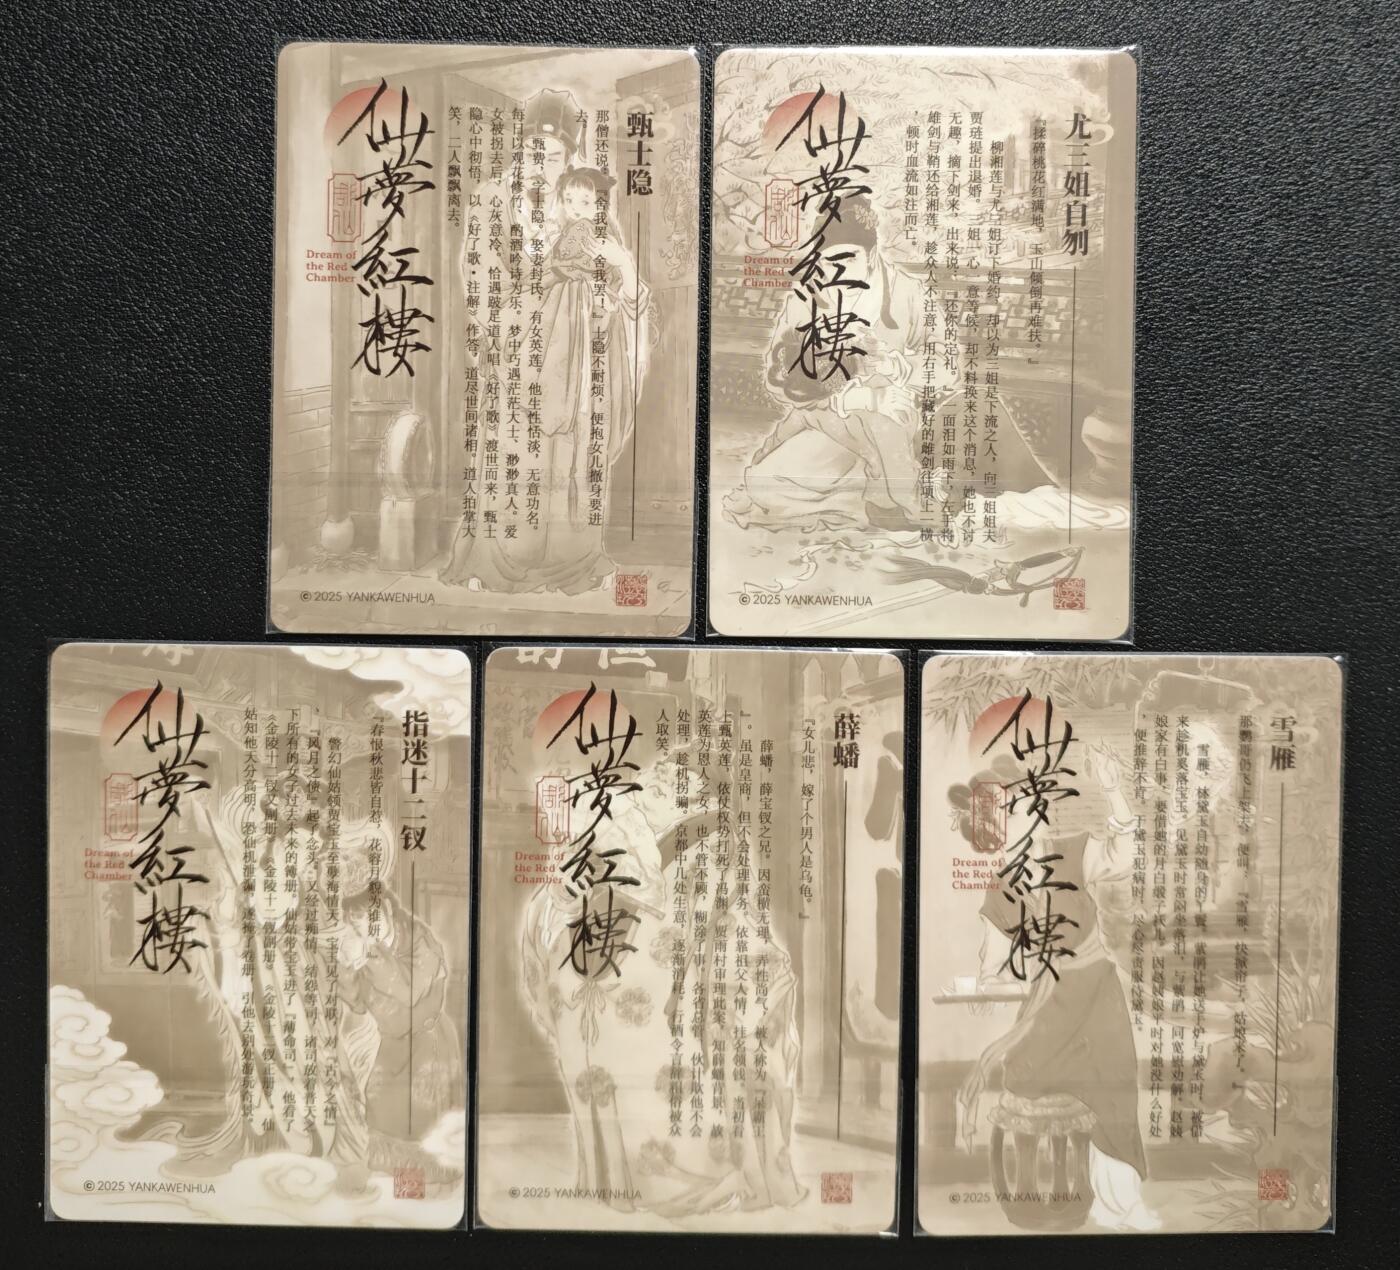 甄士隐
那僧还说：『舍我罢，舍我罢！』士隐不耐烦，便抱女儿撤身要进
去。
甄费，字士隐。娶妻封氏，有女英莲。他生性恬淡，无意功名。
每日以观花修竹、酌酒吟诗为乐。梦中巧遇茫茫大士、渺渺真人。爱
女被拐去后，心灰意冷。恰遇跛足道人唱《好了歌》渡世而来，甄士
隐心中彻悟，以《好了歌·注解》作答，道尽世间诸相。道人拍掌大
笑，二人飘飘离去。
仙夢紅樓
Dream of
the Red
Chamber
© 2025 YANKAWENHUA
尤三姐自刎
『揉碎桃花红满地，玉山倾倒再难扶。』
柳湘莲与尤三姐订下婚约，却以为三姐是下流之人，向三姐姐夫
贾琏提出退婚。三姐一心一意等候，却不料换来这个消息，她也不讨
无趣，摘下剑来，出来说：『还你的定礼。』一面泪如雨下，左手将
雄剑与鞘还给湘莲，趁众人不注意，用右手把藏好的雌剑往项上一横
，顿时血流如注而亡。
仙夢紅樓
Dream of
the Red
Chamber
© 2025 YANKAWENHUA
指迷十二钗
『春恨秋悲皆自惹，花容月貌为谁妍。』
警幻仙姑领贾宝玉至孽海情天，宝玉见了对联，对『古今之情』
、『风月之债』起了念头。又经过痴情、结怨等司，诸司放着普天之
下所有的女子过去未来的簿册。仙姑带宝玉进了『薄命司』，他看了
《金陵十二钗又副册》《金陵十二钗副册》《金陵十二钗正册》。仙
姑知他天分高明，恐仙机泄漏，遂掩了卷册，引他去别处游玩奇景。
仙夢紅樓
Dream of
the Red
Chamber
© 2025 YANKAWENHUA
薛蟠
『女儿悲，嫁了个男人是乌龟。』
薛蟠，薛宝钗之兄。因蛮横无理，弄性尚气，被人称为『呆霸王
』。虽是皇商，但不会处理事务。依靠祖父人情，挂名领钱。当初看
上甄英莲，依仗权势打死了冯渊。贾雨村审理此案，知薛蟠背景，故
英莲为恩人之女，也不管不顾，糊涂了事。各省总管、伙计欺他不会
处理，趁机拐骗。京都中几处生意，逐渐消耗。行酒令言辞粗俗被众
人取笑。
仙夢紅樓
Dream of
the Red
Chamber
© 2025 YANKAWENHUA
雪雁
那鹦哥仍飞上架去，便叫：『雪雁，快掀帘子，姑娘来了。』
雪雁，林黛玉自幼随身的丫鬟。紫鹃让她送手炉与黛玉时，被借
来趁机奚落宝玉。见黛玉时常闷坐落泪，与紫鹃一同宽慰劝解。赵姨
娘家有白事，要借她的月白缎子袄儿。因赵姨娘平时对她没什么好处
，便推辞不肯。于黛玉犯病时，尽心尽责服侍黛玉。
仙夢紅樓
Dream of
the Red
Chamber
© 2025 YANKAWENHUA